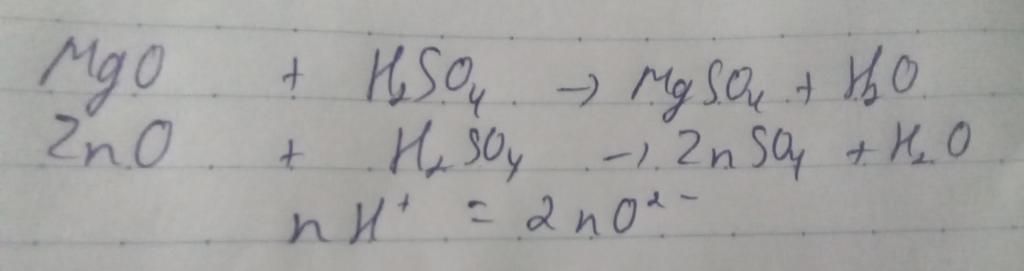 MgO + H₂SO₄ → MgSO₄ + H₂O
ZnO + H₂SO₄ → ZnSO₄ + H₂O
nH⁺ = 2nO²⁻